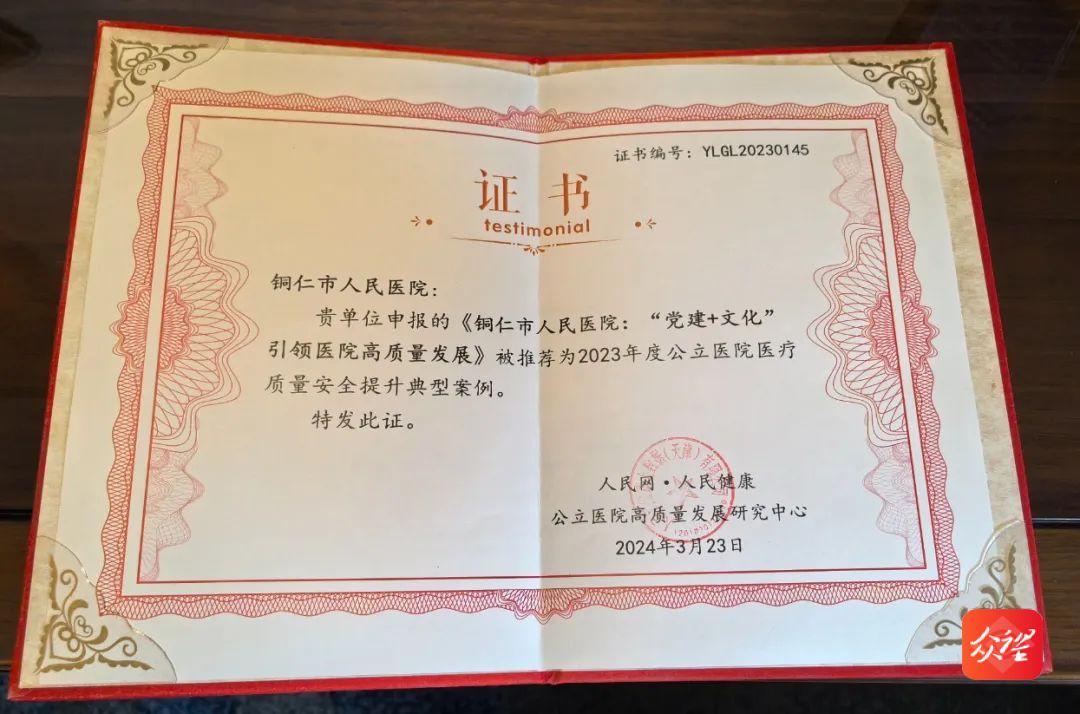 证书编号：YLGL20230145
证书
testimonial
铜仁市人民医院：
贵单位申报的《铜仁市人民医院：“党建+文化”
引领医院高质量发展》被推荐为2023年度公立医院医疗
质量安全提升典型案例。
特发此证。
人民网·人民健康
公立医院高质量发展研究中心
2024年3月23日
众望